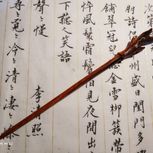 盛日閨門多
鋪翠冠兒撚金雪柳簇帶
悴風鬟霜鬢怕見夜間出
下聽人笑語
李清照
尋〻覓〻冷〻清〻凄〻